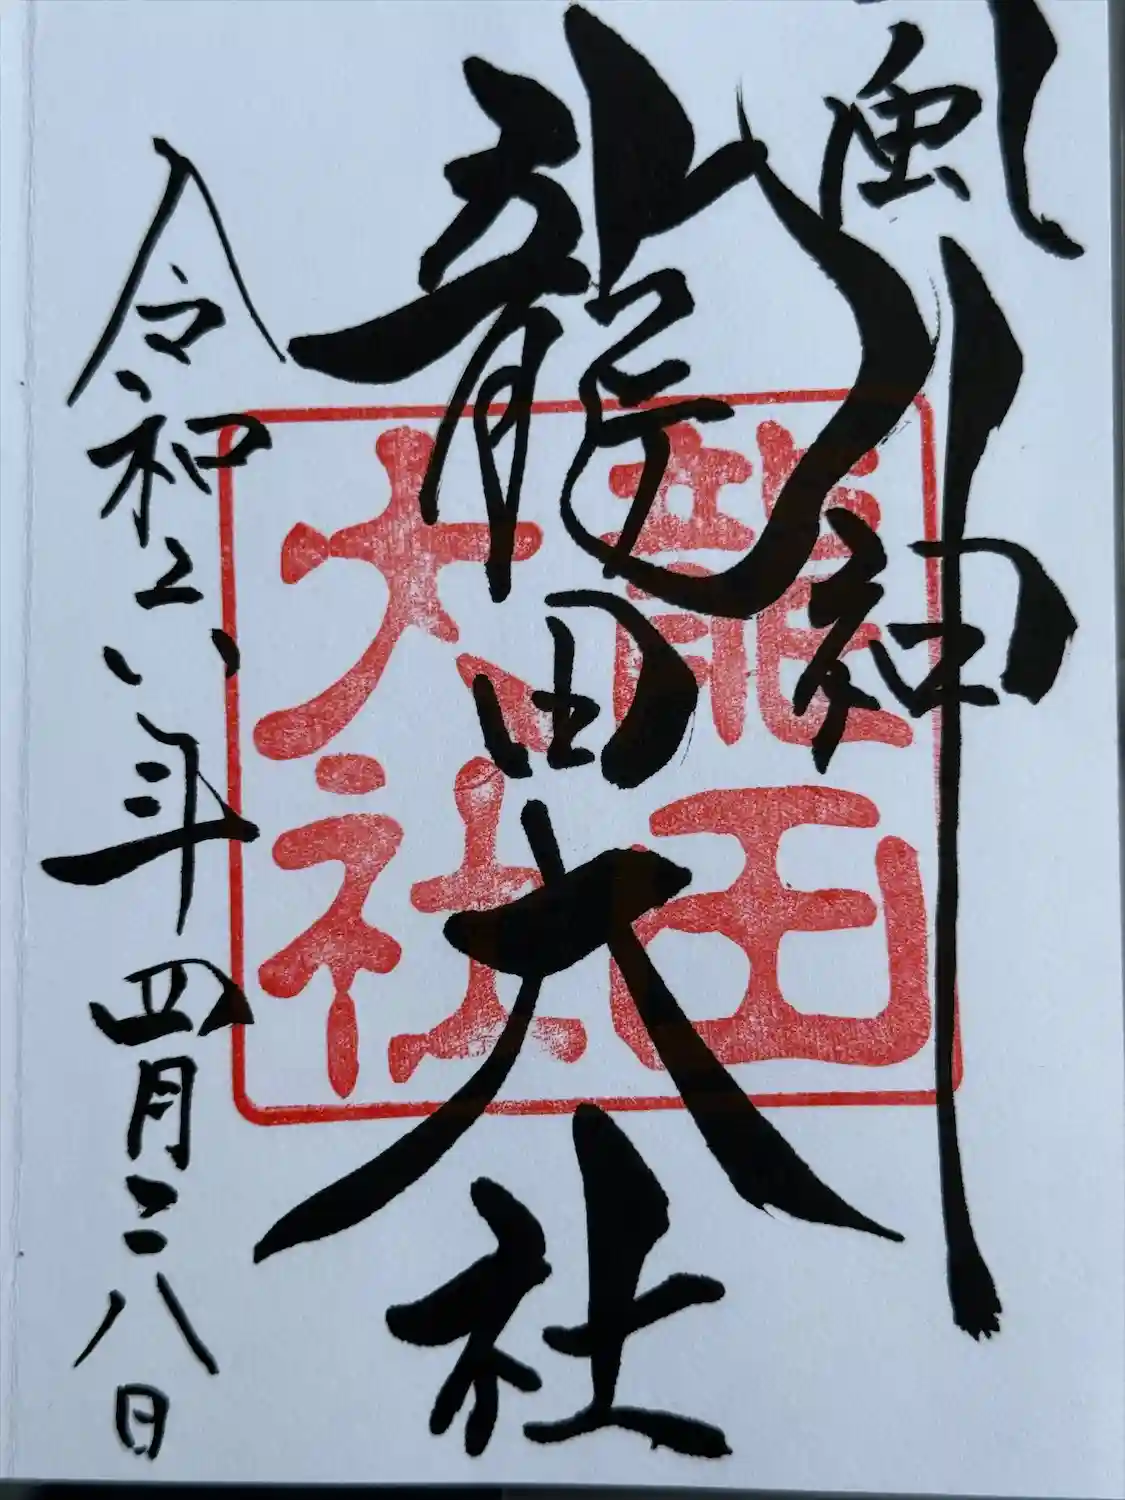 風神
龍田大社
令和六年四月二八日
龍田
大社